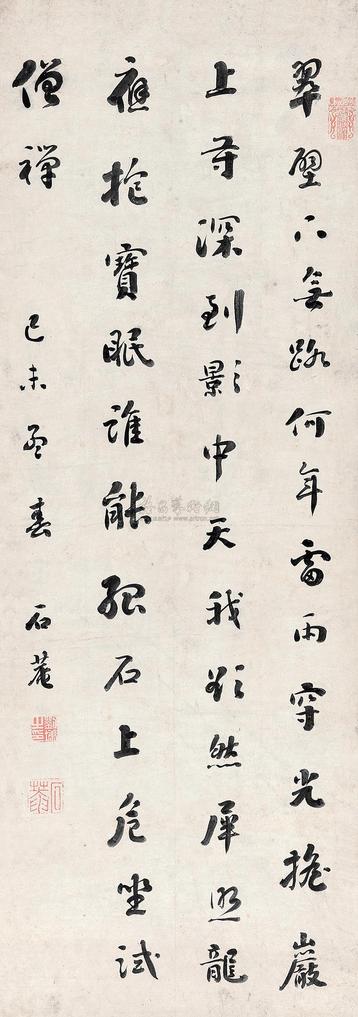 翠壁下無路何年雷雨穿光搖巖
上寺深到影中天我欲然犀照龍
應抱寶眠誰能孤石上危坐試
僧禪
己未孟春 石菴
石菴